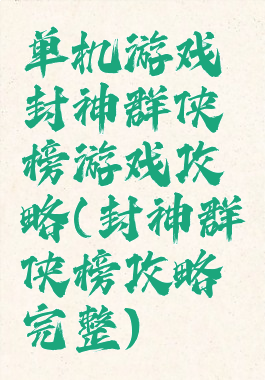 单机游戏
封神群侠
榜游戏攻
略(封神群
侠榜攻略
完整)